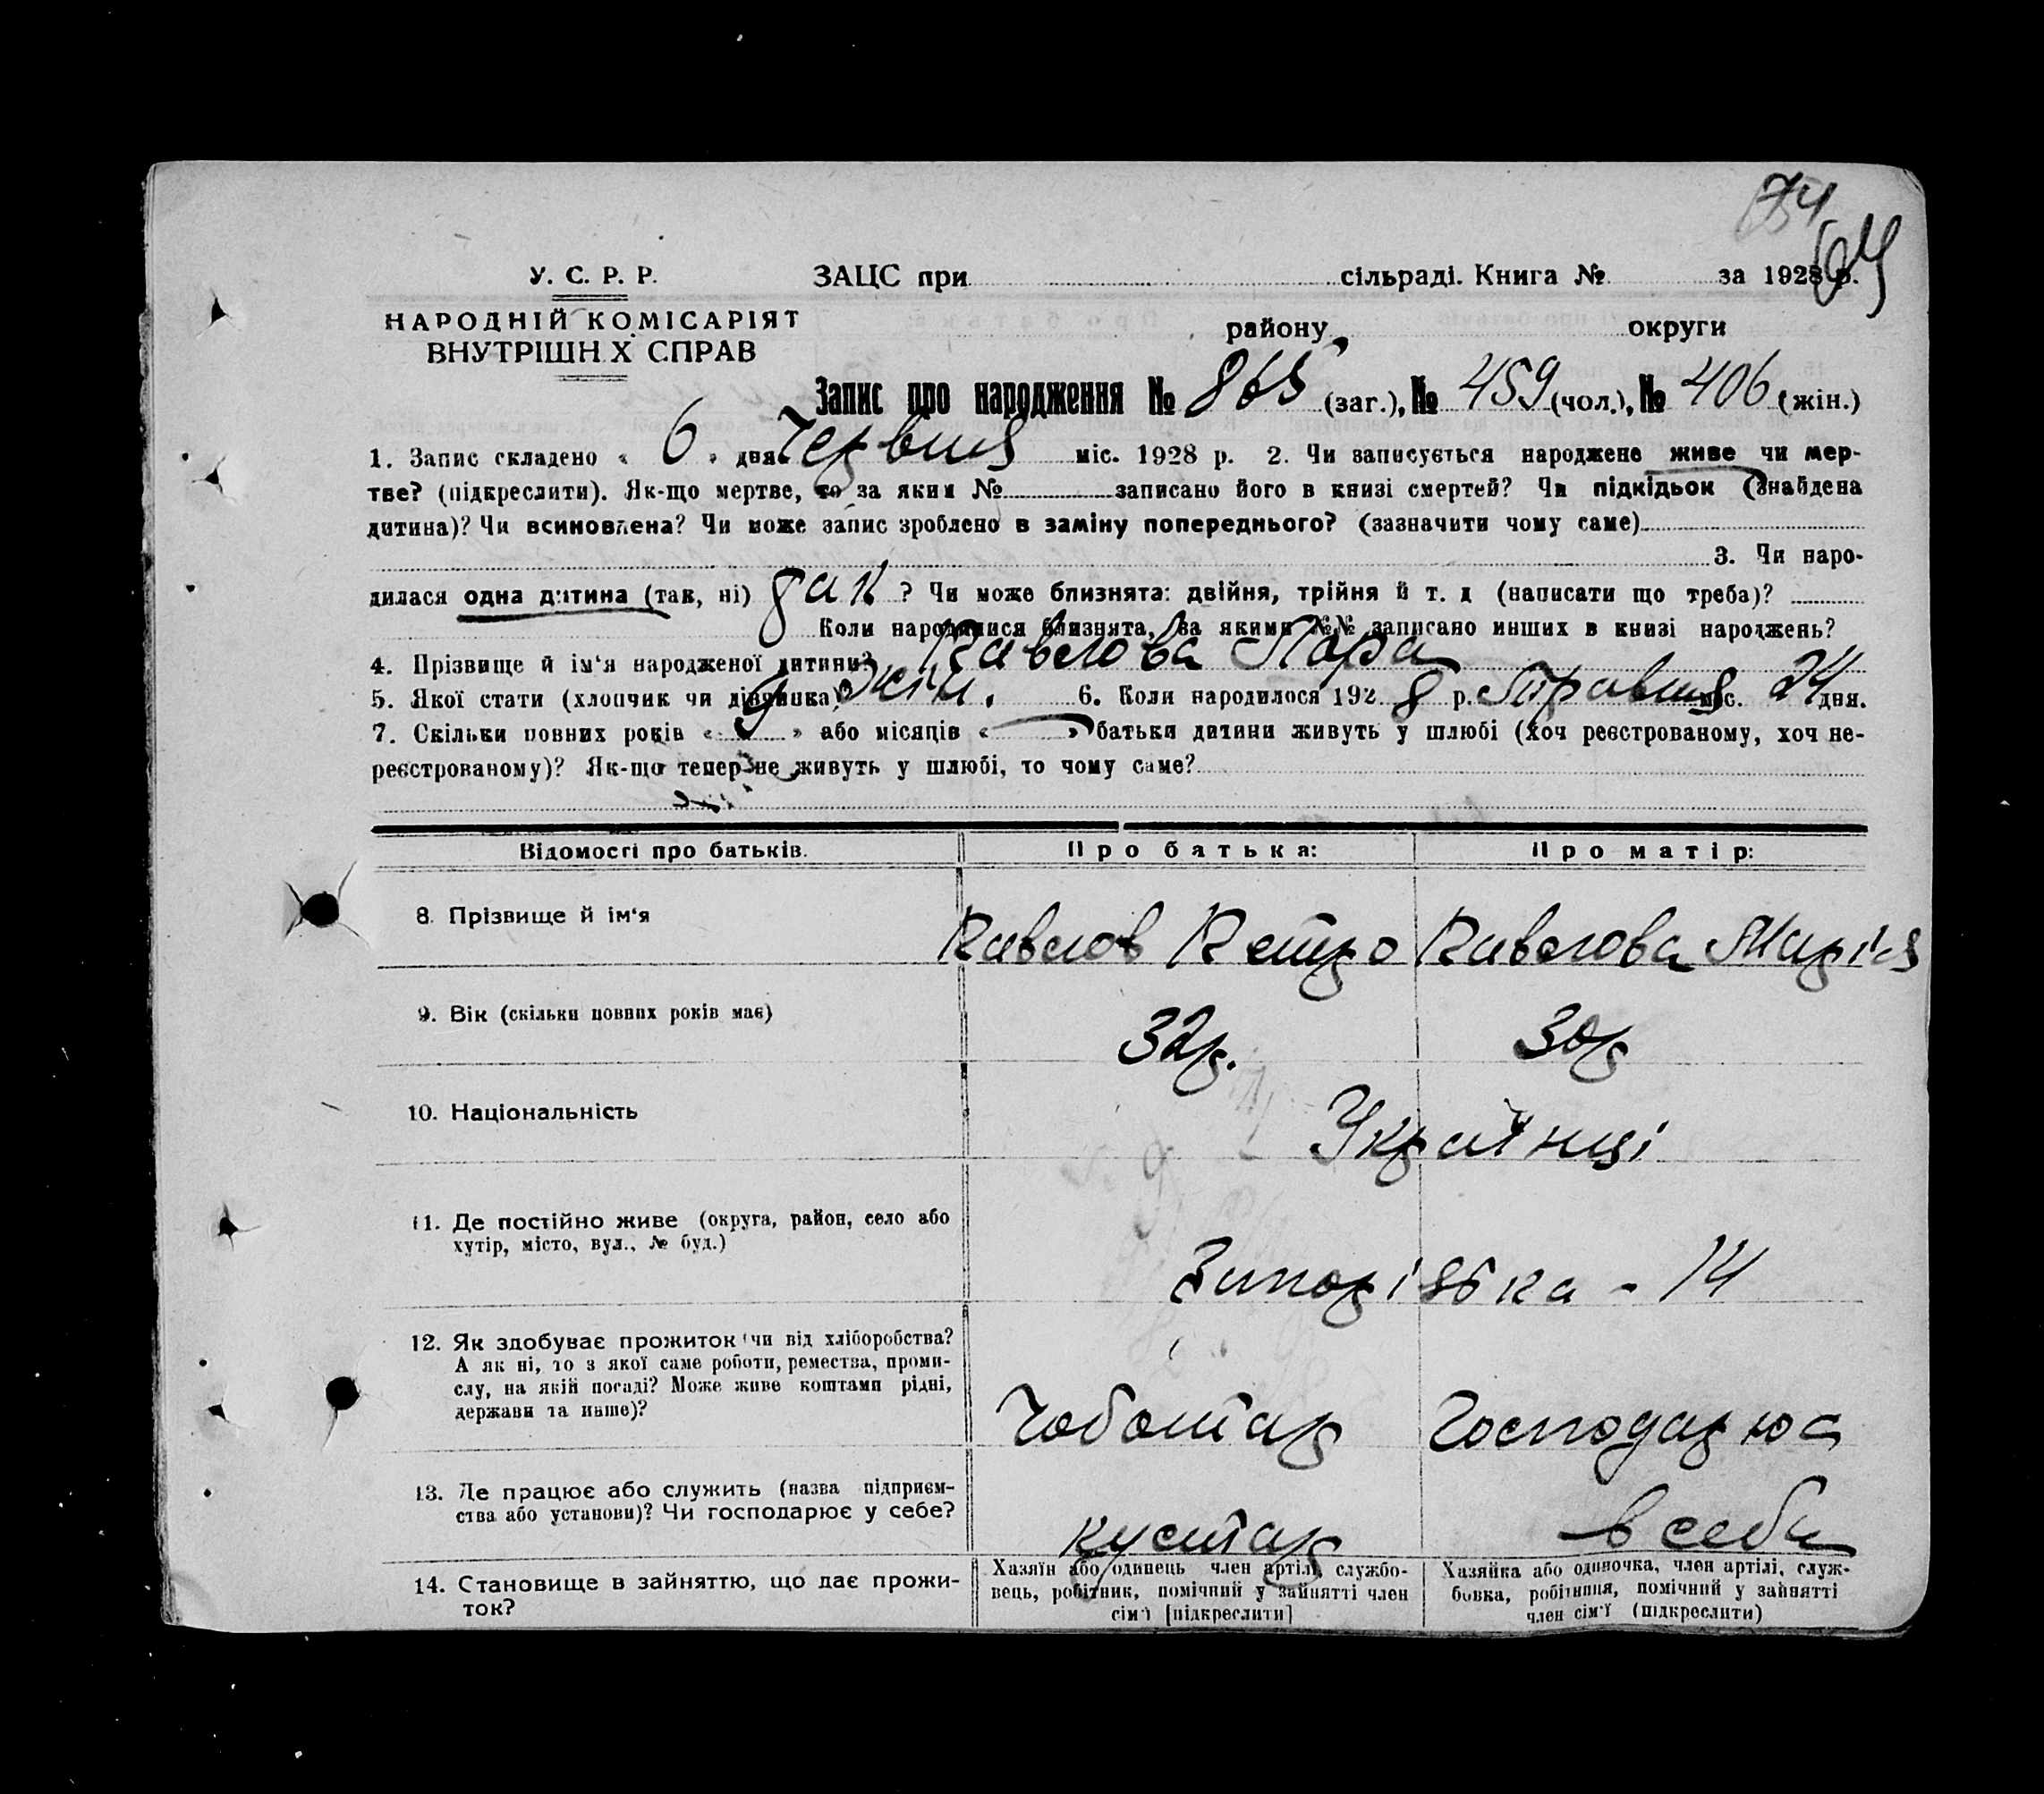 74
64
У. С. Р. Р.
ЗАЦС при сільраді. Книга № за 1928 р.
НАРОДНІЙ КОМІСАРІЯТ
ВНУТРІШН Х СПРАВ
району, округи
Запис про народження № 865 (заг.), № 459 (чол.), № 406 (жін.)
1. Запис складено « 6 » дня Червня міс. 1928 р. 2. Чи записується народжене живе чи мер-
тве? (підкреслити). Як-що мертве, то за яким № записано його в книзі смертей? Чи підкідьок (знайдена
дитина)? Чи всиновлена? Чи може запис зроблено в заміну попереднього? (зазначити чому саме)
3. Чи наро-
дилася одна дитина (так, ні) так ? Чи може близнята: двійня, трійня й т. д (написати що треба)?
Коли народилися близнята, за якими №№ записано инших в книзі народжень?
4. Прізвище й ім'я народженої дитини? Павлова
5. Якої стати (хлопчик чи дівчинка)? жін. 6. Коли народилося 1928 р. Травня міс. 24 дня.
7. Скільки повних років « 9 » або місяців « — » батьки дитини живуть у шлюбі (хоч реєстрованому, хоч не-
реєстрованому)? Як-що тепер не живуть у шлюбі, то чому саме?
Відомості про батьків.
Про батька:
Про матір:
8. Прізвище й ім'я
Павлов Петро
Павлова Марія
9. Вік (скільки повних років має)
32р.
30р
10. Національність
Українці
11. Де постійно живе (округа, район, село або
хутір, місто, вул., № буд.)
Запорізька - 14
12. Як здобуває прожиток (чи від хліборобства?
А як ні, то з якої саме роботи, ремества, проми-
слу, на якій посаді? Може живе коштами рідні,
держави та инше)?
Чоботар
Господарює
13. Де працює або служить (назва підприєм-
ства або установи)? Чи господарює у себе?
кустар
в себе
14. Становище в зайняттю, що дає прожи-
ток?
Хазяїн або одинець член артілі службо-
вець, робітник, помічний у зайнятті член
сім'ї [підкреслити]
Хазяйка або одиночка, член артілі, служ-
бовка, робітниця, помічний у зайнятті
член сім'ї (підкреслити)